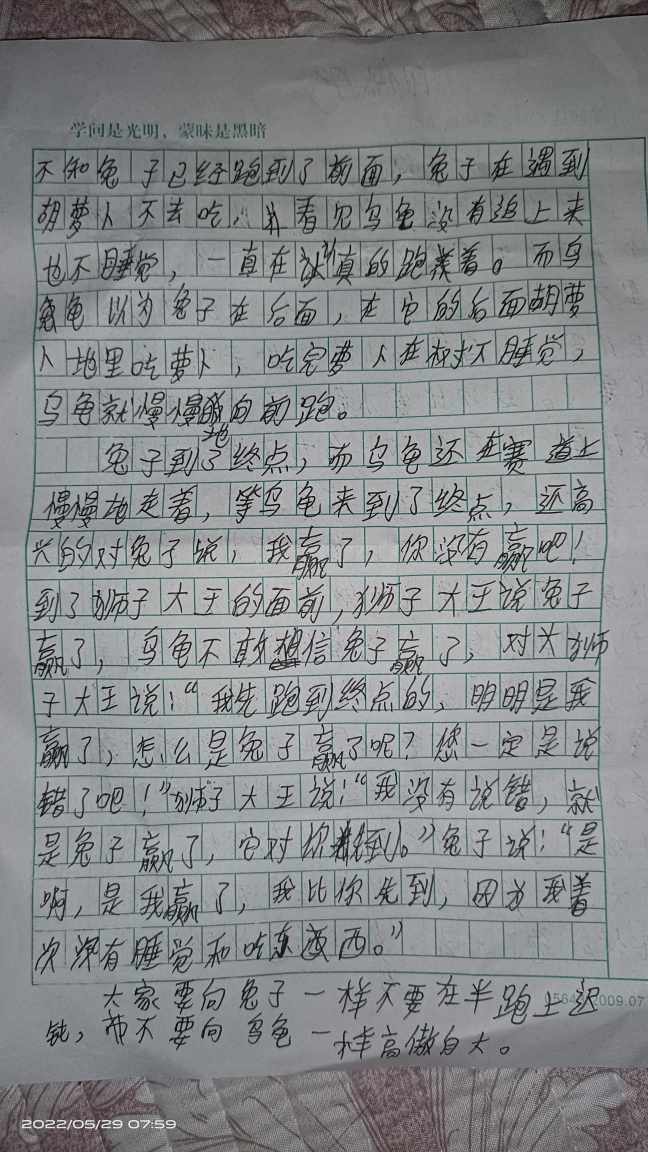 学问是光明，蒙昧是黑暗
不知兔子已经跑到了前面，兔子在遇到
胡萝卜不去吃，并看见乌龟没有追上来
也不睡觉，一直在认真的跑着。而乌
龟以为兔子在后面，在它的后面胡萝
卜地里吃萝卜，吃完萝卜在树下睡觉，
乌龟就慢慢地向前跑。
兔子到了终点，而乌龟还在赛道上
慢慢地走着，等乌龟来到了终点，还高
兴的对兔子说，我赢了，你没有赢吧！
到了狮子大王的面前，狮子大王说兔子
赢了，乌龟不敢相信兔子赢了，对大狮
子大王说：“我先跑到终点的，明明是我
赢了，怎么是兔子赢了呢？您一定是说
错了吧！”狮子大王说：“我没有说错，就
是兔子赢了，它对你到。”兔子说：“是
啊，是我赢了，我比你先到，因为我着
次没有睡觉和吃东西。”
大家要向兔子一样不要在半跑上迟
钝，而不要向乌龟一样高傲自大。
2009.07
2022/05/29 07:59